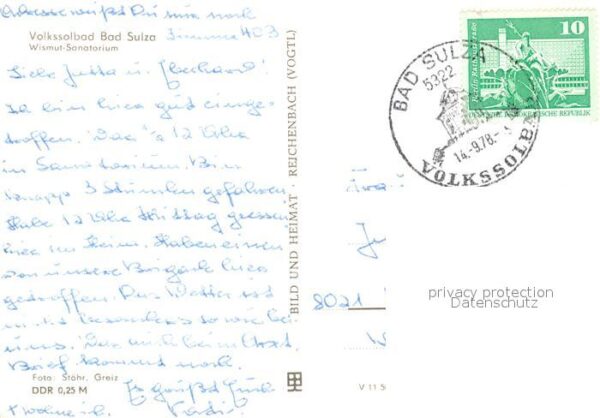 Adresse weißt Du nur noch
Zimmer 403
Volkssolbad Bad Sulza
Wismut-Sanatorium
Liebe Jutta u. Eberhard!
Ich bin hier gut einge-
troffen. War ¼ 12 Uhr
im Sanatorium. Bin
knapp 3 Stunden gefahren.
Habe 12 Uhr Mittag gegessen
hier im Heim. Haben einen
von unsere hier
getroffen. Das Wetter ist
nicht besonders so wie bei
uns. beim Arzt.
Brief kommt noch.
Es grüßt Euch
Foto: Stöhr, Greiz
DDR 0,25 M
BILD UND HEIMAT · REICHENBACH (VOGTL)
V 11 5
BAD SULZA
5322
14.-9.78.-
VOLKSSOLBAD
10
DEUTSCHE DEMOKRATISCHE REPUBLIK
8021
privacy protection
Datenschutz